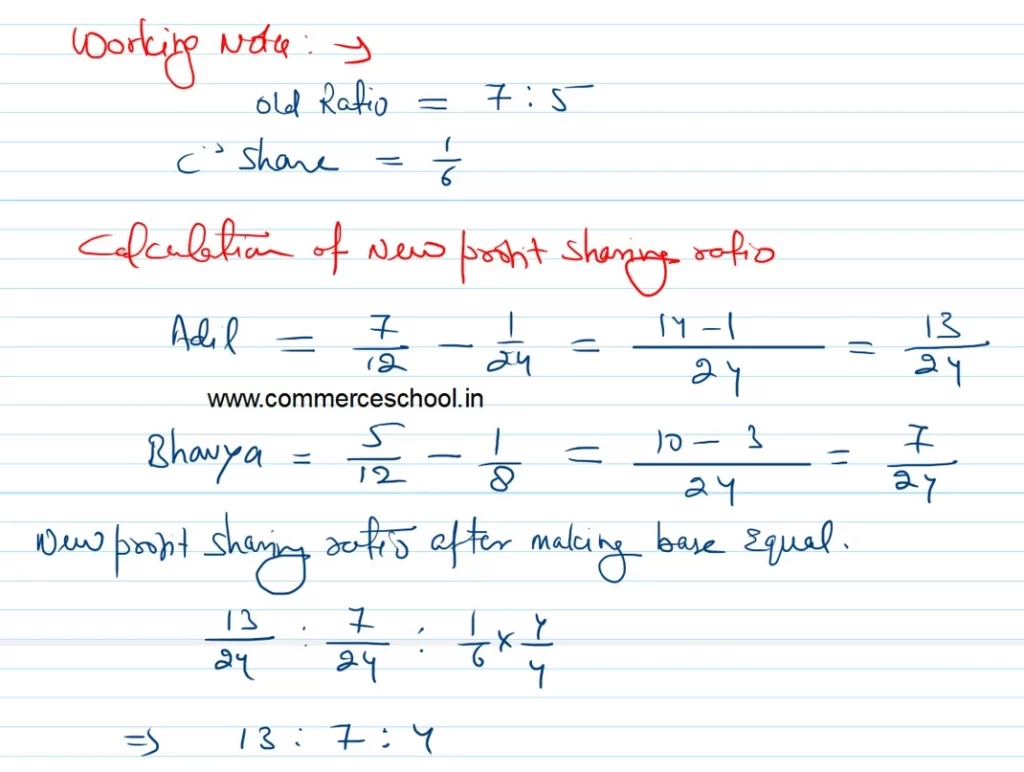 Working Note : →
Old Ratio = 7 : 5
C's Share = 1/6
Calculation of New profit sharing ratio
Adil = 7/12 - 1/24 = 14 - 1/24 = 13/24
www.commerceschool.in
Bhavya = 5/12 - 1/8 = 10 - 3/24 = 7/24
New profit sharing ratio after making base Equal.
13/24 : 7/24 : 1/6 × 4/4
⇒ 13 : 7 : 4